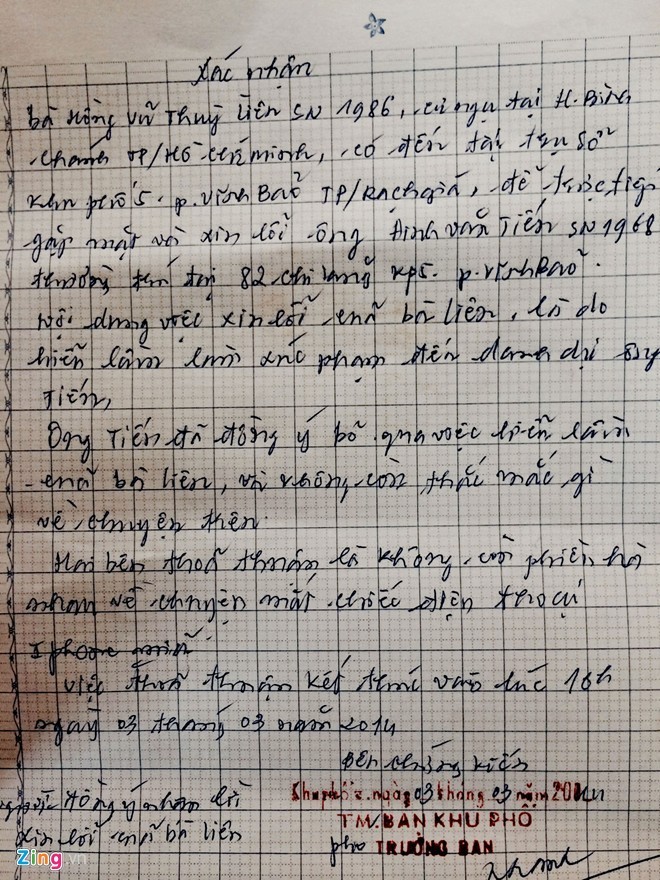 Xác nhận
bà Hồng Vũ Thuỳ Liên SN 1986, cư ngụ tại H. Bình
chánh TP/Hồ chí minh, có đến tại trụ sở
khu phố 5. p. vĩnh Bảo TP/Rạch giá, để trực tiếp
gặp mặt và xin lỗi ông Đinh văn Tiến SN 1968
thường trú tại 82 chi lăng kp5. p. vĩnh Bảo.
Nội dung việc xin lỗi của bà liên, là do
hiểu lầm làm xúc phạm đến danh dự ông
Tiến,
Ông Tiến đã đồng ý bỏ qua việc hiểu lầm
của bà liên, và không còn thắc mắc gì
về chuyện trên.
Hai bên thoả thuận là không còn phiền hà
nhau về chuyện mất chiếc điện thoại
Iphone
việc thoả thuận kết thúc vào lúc 16h
ngày 03 tháng 03 năm 2014
Bên chứng kiến
đồng ý nhận lời
xin lỗi của bà liên
Khu phố 5, ngày 03 tháng 03 năm 2014
TM. BAN KHU PHỐ
phó TRƯỞNG BAN
Zing.vn